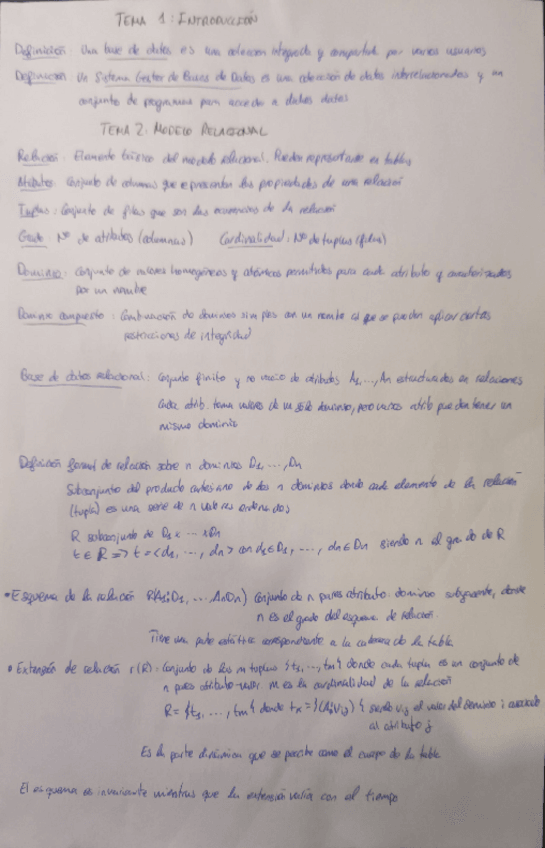 TEMA 1: INTRODUCCIÓN
Definición: Una base de datos es una coleccion integrada y compartida por varios usuarios
Definición: Un Sistema Gestor de Bases de Datos es una colección de datos interrelacionados y un
conjunto de programas para acceder a dichos datos
TEMA 2: MODELO RELACIONAL
Relación: Elemento básico del modelo relacional. Pueden representarse en tablas
Atributos: Conjunto de columnas que representan las propiedades de una relación
Tuplas: Conjunto de filas que son las ocurrencias de la relación
Grado Nº de atributos (columnas) Cardinalidad: Nº de tuplas (filas)
Dominio: Conjunto de valores homogéneos y atómicos permitidos para cada atributo y caracterizados
por un nombre
Dominio compuesto: Combinación de dominios simples con un nombre al que se pueden aplicar ciertas
restricciones de integridad
Base de datos relacional: conjunto finito y no vacio de atributos A1,...,An estructurados en relaciones
cada atrib. toma valores de un sólo dominio, pero varios atrib pueden tener un
mismo dominio
Definición formal de relación sobre n dominios D1,...,Dn
Subconjunto del producto cartesiano de los n dominios donde cada elemento de la relación
(tupla) es una serie de n valores ordenados
R subconjunto de D1 x ... x Dn
t ∈ R => t = <d1, ..., dn> con d1 ∈ D1, ..., dn ∈ Dn siendo n el grado de R
• Esquema de la relación R(A1:D1, ..., An:Dn) conjunto de n pares atributo-dominio subyacente, donde
n es el grado del esquema de relación.
Tiene una parte estática correspondiente a la cabecera de la tabla
• Extensión de relación r(R): Conjunto de las m tuplas {t1,...,tm} donde cada tupla es un conjunto de
n pares atributo-valor. m es la cardinalidad de la relación
R = {t1, ..., tm} donde tx = {(Ai:Vij)} siendo Vij el valor del dominio i asociado
al atributo j
Es la parte dinámica que se percibe como el cuerpo de la tabla
El esquema es invariante mientras que la extensión varía con el tiempo